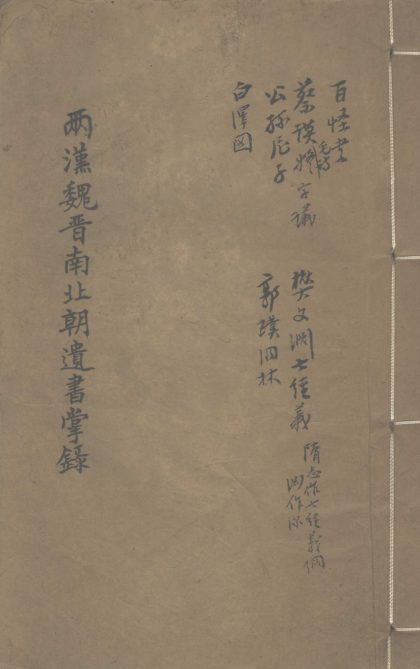 百怪書
蔡謨
毛詩
字議
公孫尼子
白澤図
樊文淵七經義
隋志作七經義綱
淵作深
郭璞洞林
兩漢魏晋南北朝遺書掌錄